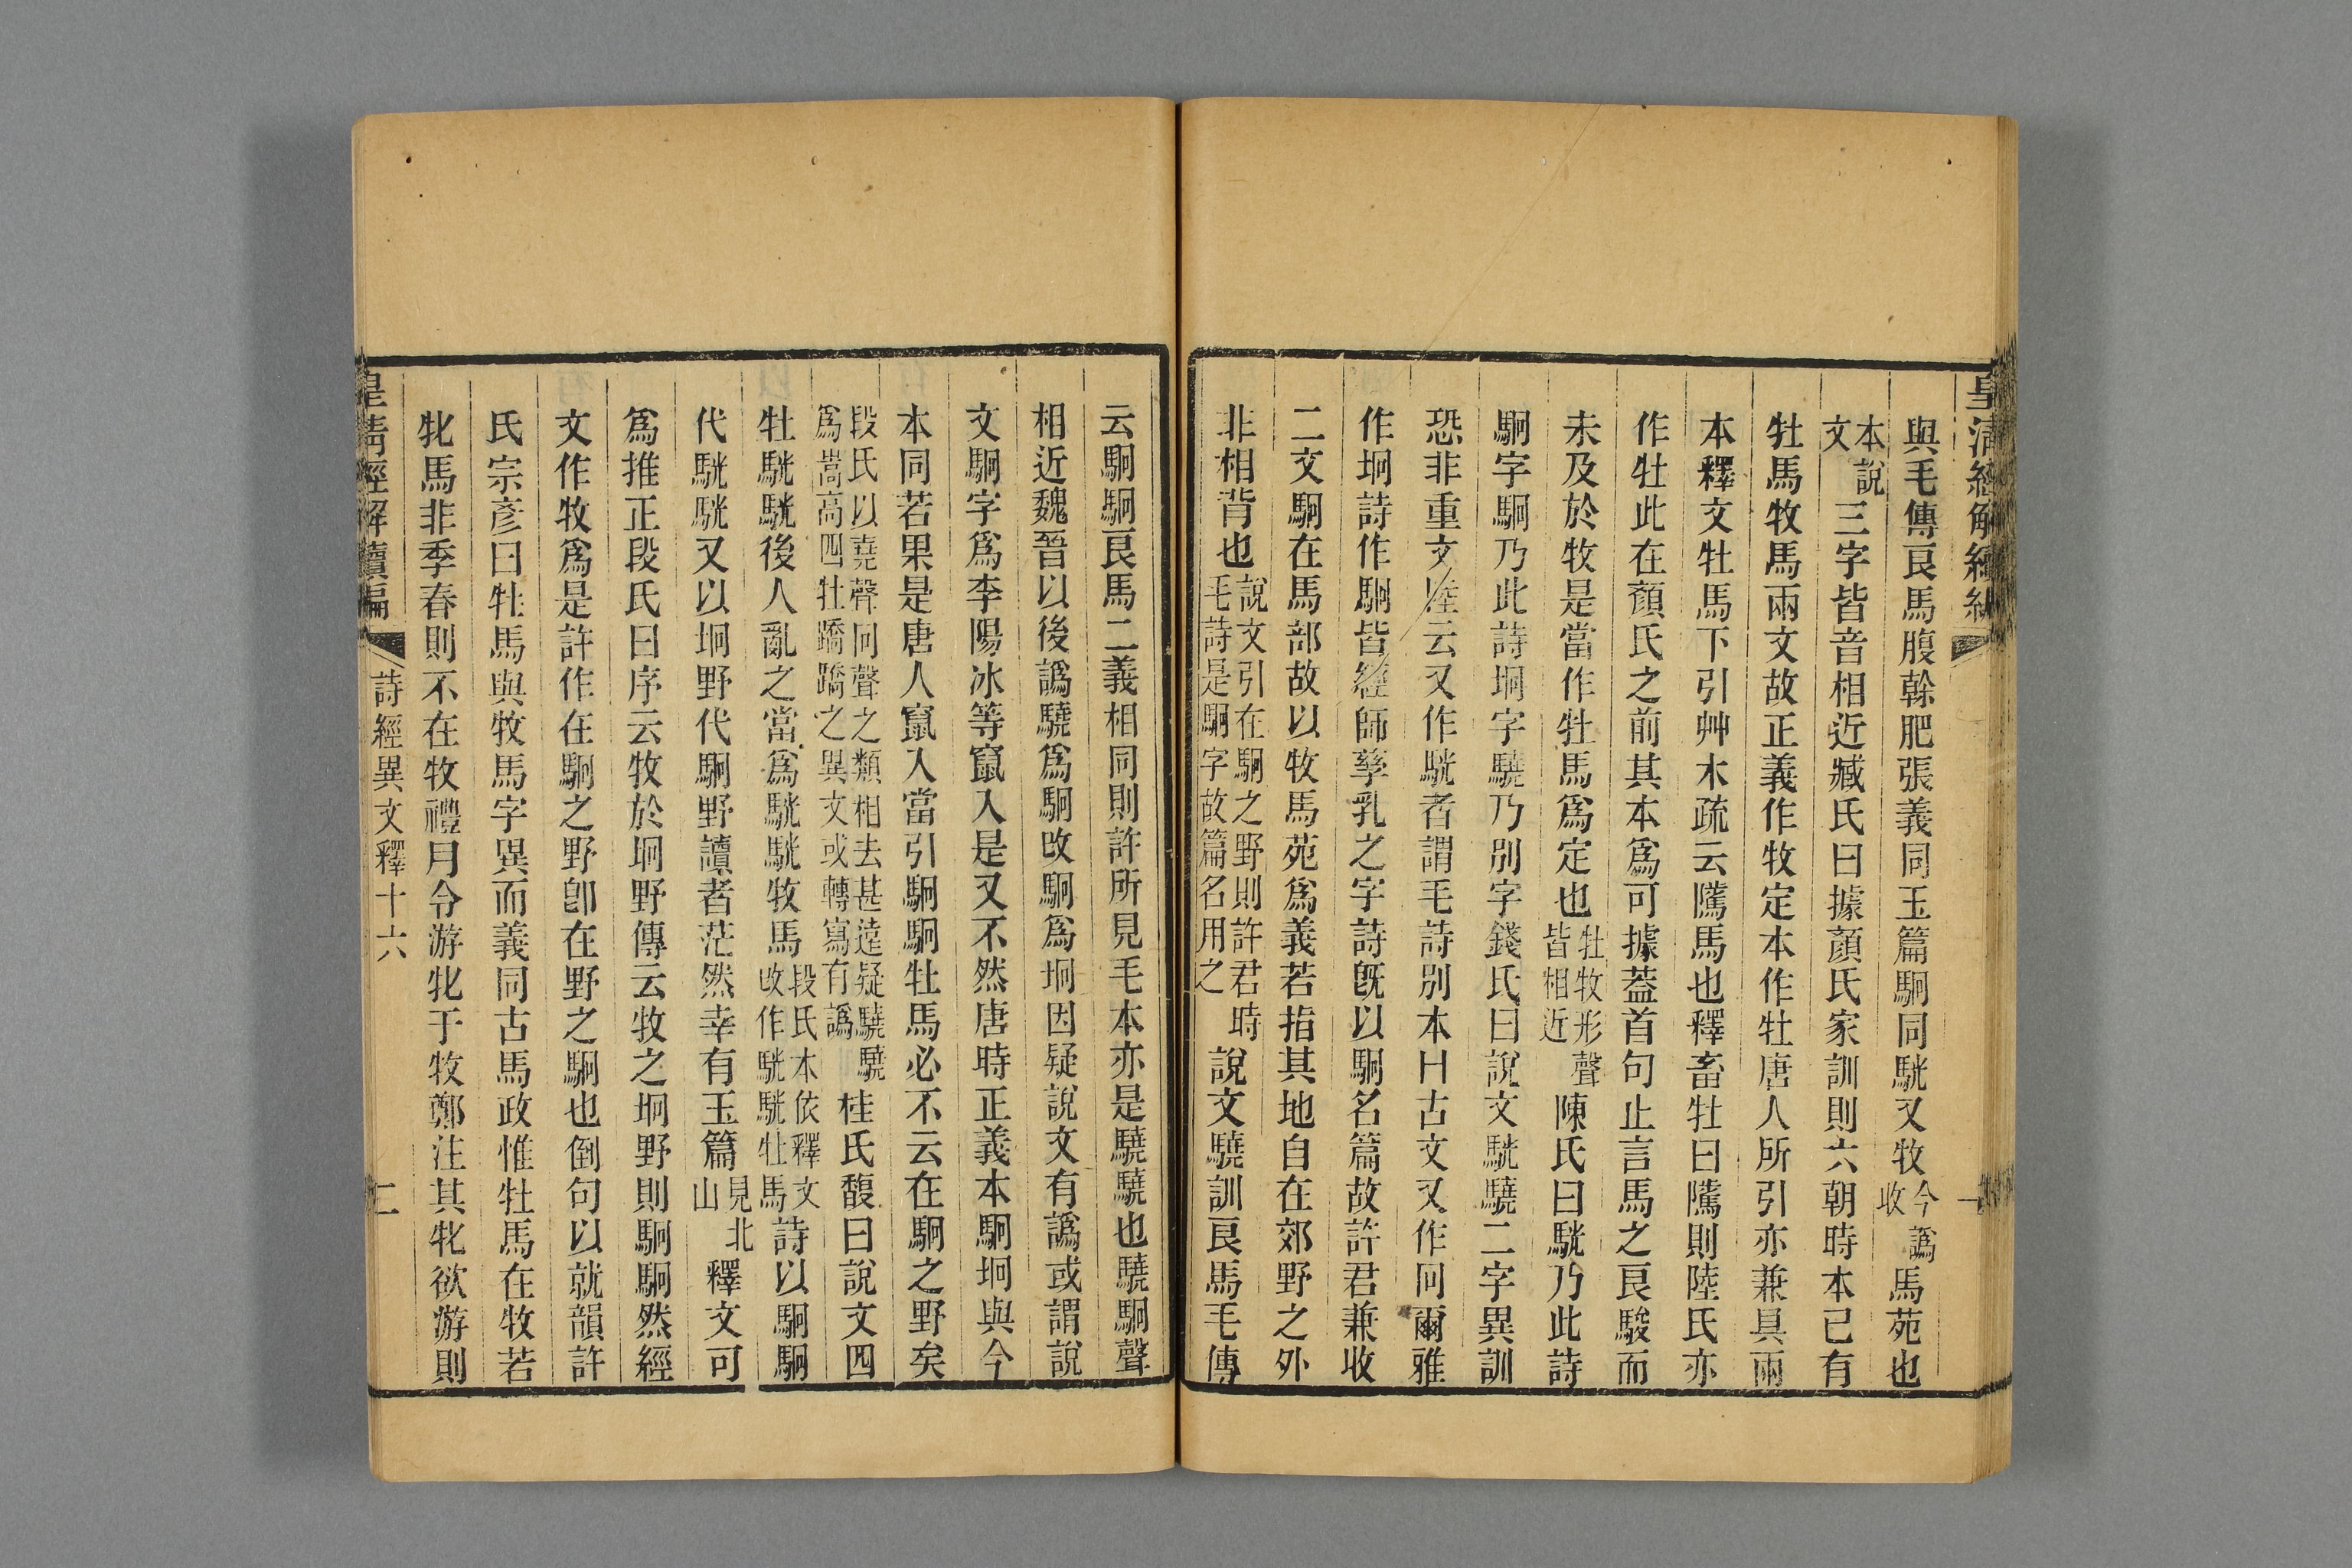 皇清經解續編
一
與毛傳良馬腹榦肥張義同玉篇駉同駫又牧今譌收馬苑也
本說文三字皆音相近臧氏曰據顏氏家訓則六朝時本已有
牡馬牧馬兩文故正義作牧定本作牡唐人所引亦兼具兩
本釋文牡馬下引艸木疏云騭馬也釋畜牡曰騭則陸氏亦
作牡此在顏氏之前其本爲可據蓋首句止言馬之良駿而
未及於牧是當作牡馬爲定也牡牧形聲皆相近陳氏曰駫乃此詩
駉字駉乃此詩坰字驍乃別字錢氏曰說文駫驍二字異訓
恐非重文陸云又作駫者謂毛詩別本H古文又作冋爾雅
作坰詩作駉皆經師孳乳之字詩旣以駉名篇故許君兼收
二文駉在馬部故以牧馬苑爲義若指其地自在郊野之外
非相背也說文引在駉之野則許君時毛詩是駉字故篇名用之說文驍訓良馬毛傳
云駉駉良馬二義相同則許所見毛本亦是驍驍也驍駉聲
相近魏晉以後譌驍爲駉改駉爲坰因疑說文有譌或謂說
文駉字爲李陽冰等竄入是又不然唐時正義本駉坰與今
本同若果是唐人竄入當引駉駉牡馬必不云在駉之野矣
段氏以堯聲冋聲之類相去甚遠疑驍驍爲嵩高四牡蹻蹻之異文或轉寫有譌桂氏馥曰說文四
牡駫駫後人亂之當爲駫駫牧馬段氏本依釋文改作駫駫牡馬詩以駉駉
代駫駫又以坰野代駉野讀者茫然幸有玉篇見北山釋文可
爲推正段氏曰序云牧於坰野傳云牧之坰野則駉駉然經
文作牧爲是許作在駉之野卽在野之駉也倒句以就韻許
氏宗彥曰牡馬與牧馬字異而義同古馬政惟牡馬在牧若
牝馬非季春則不在牧禮月令游牝于牧鄭注其牝欲游則
皇清經解續編
詩經異文釋十六
二